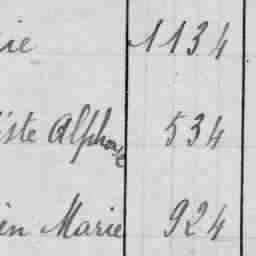 ie 1134
iste Alphonse 534
in Marie 924